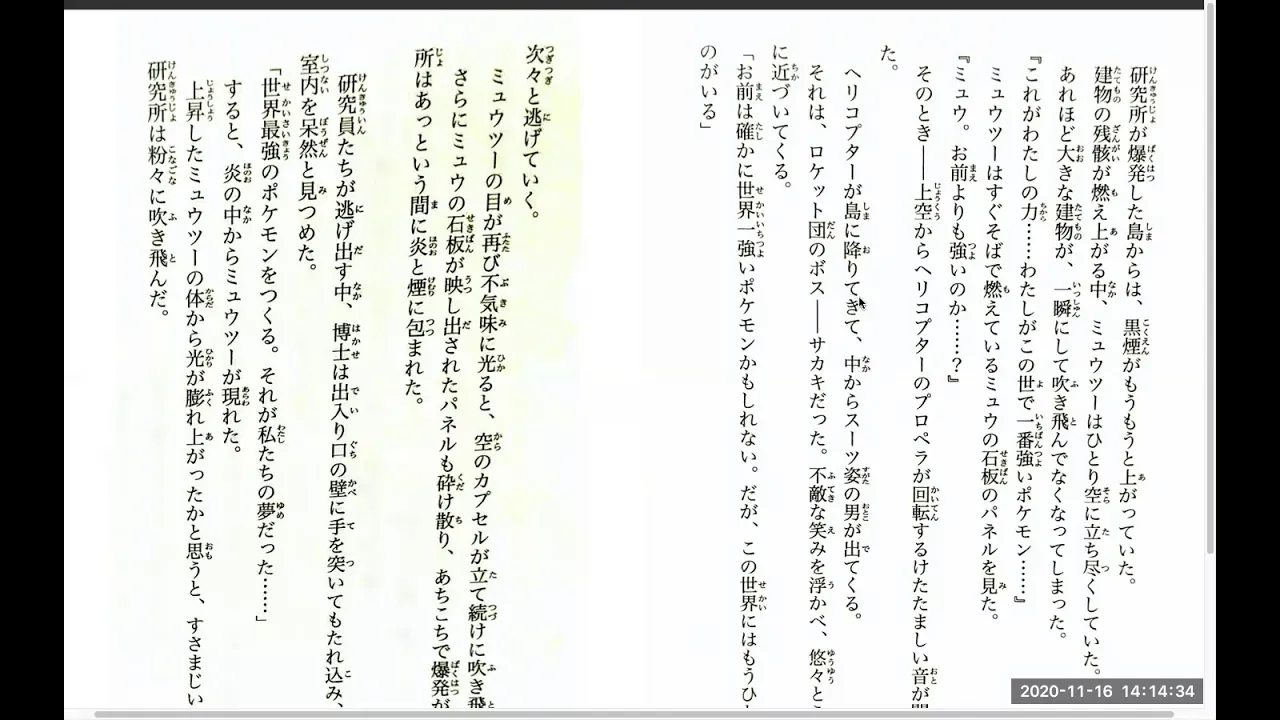 研究所が爆発した島からは、黒煙がもうもうと上がっていた。
建物の残骸が燃え上がる中、ミュウツーはひとり空に立ち尽くしていた。
あれほど大きな建物が、一瞬にして吹き飛んでなくなってしまった。
『これがわたしの力……わたしがこの世で一番強いポケモン……』
ミュウツーはすぐそばで燃えているミュウの石板のパネルを見た。
『ミュウ。お前よりも強いのか……？』
そのとき――上空からヘリコプターのプロペラが回転するけたたましい音が
た。
ヘリコプターが島に降りてきて、中からスーツ姿の男が出てくる。
それは、ロケット団のボス――サカキだった。不敵な笑みを浮かべ、悠々と
に近づいてくる。
「お前は確かに世界一強いポケモンかもしれない。だが、この世界にはもうひ
のがいる」
次々と逃げていく。
ミュウツーの目が再び不気味に光ると、空のカプセルが立て続けに吹き飛
さらにミュウの石板が映し出されたパネルも砕け散り、あちこちで爆発が
所はあっという間に炎と煙に包まれた。
研究員たちが逃げ出す中、博士は出入り口の壁に手を突いてもたれ込み、
室内を呆然と見つめた。
「世界最強のポケモンをつくる。それが私たちの夢だった……」
すると、炎の中からミュウツーが現れた。
上昇したミュウツーの体から光が膨れ上がったかと思うと、すさまじい
研究所は粉々に吹き飛んだ。
2020-11-16 14:14:34